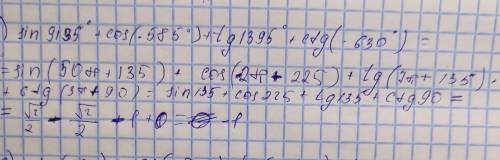 ) sin 9135° + cos(-585°) + tg 1395° + ctg(-630°) =
= sin(50π+135) + cos(2π+225) + tg(7π+135) .
+ ctg(3π+90) = sin 135 + cos 225 + tg 135 + ctg 90 =
= √2/2 - √2/2 - 1 + 0 = -1